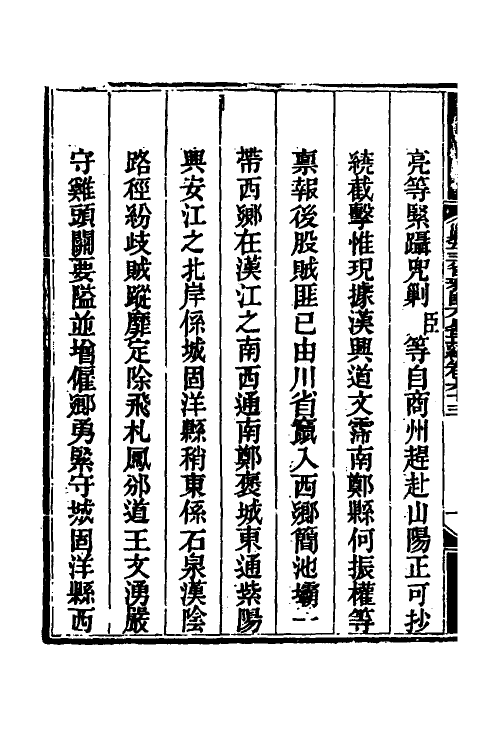 亮等緊躡兜剿臣等自商州趕赴山陽正可抄
繞截擊惟現據漢興道文霈南鄭縣何振權等
禀報後股賊匪已由川省竄入西鄉簡池壩一
帶西鄉在漢江之南西通南鄭褒城東通紫陽
興安江之北岸係城固洋縣稍東係石泉漢陰
路徑紛歧賊蹤靡定除飛札鳳邠道王文湧嚴
守雞頭關要隘並增僱鄉勇緊守城固洋縣西